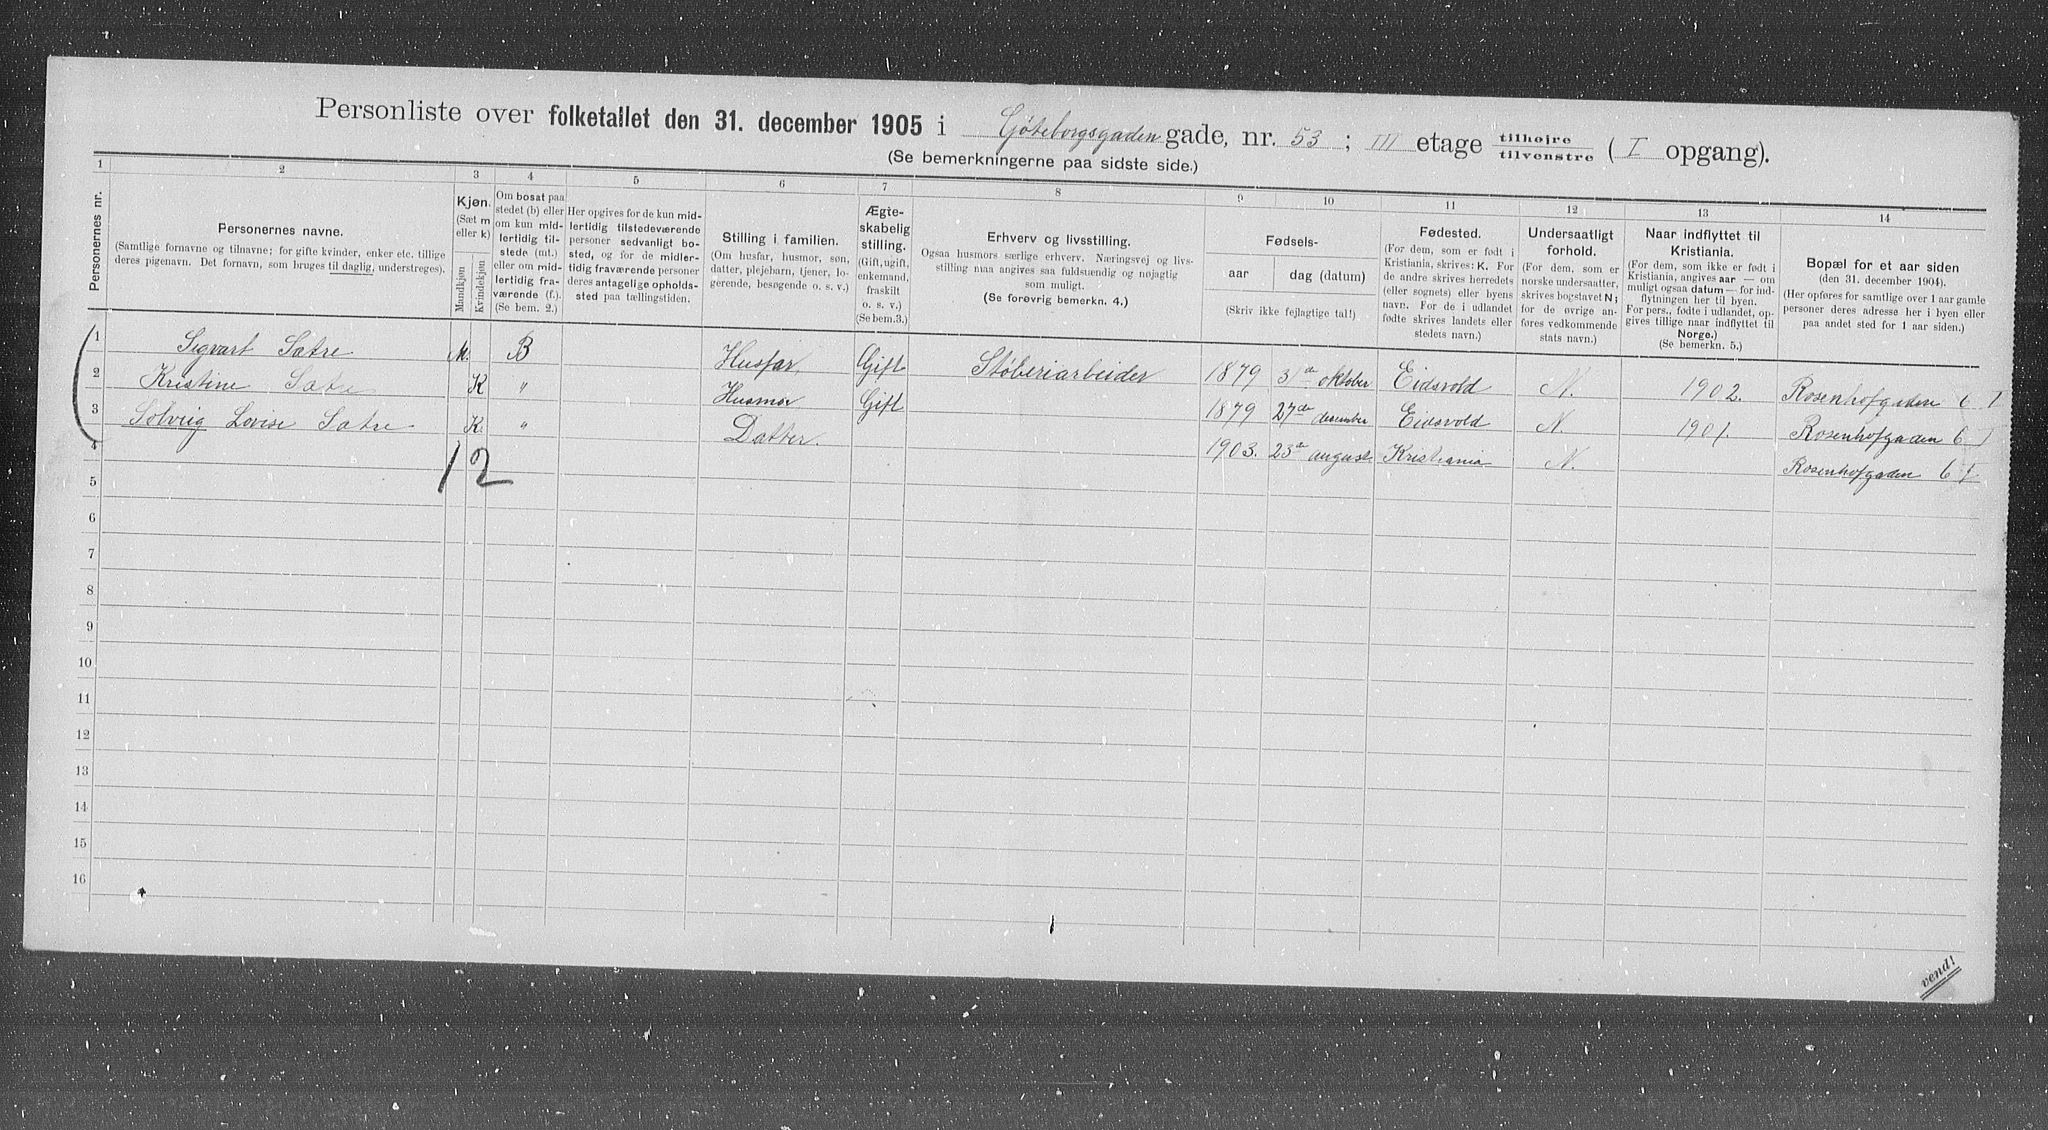 Personliste over folketallet den 31. december 1905 i Göteborgsgaden gade, nr. 53 ; III etage tilhøjre tilvenstre ( I opgang).
(Se bemerkningerne paa sidste side.)
1 2 3 4 5 6 7 8 9 10 11 12 13 14
Personernes nr.
Personernes navne.
(Samtlige fornavne og tilnavne; for gifte kvinder, enker etc. tillige
deres pigenavn. Det fornavn, som bruges til daglig, understreges).
Kjøn.
(Sæt m
eller k)
Mandkjøn
Kvindekjøn
Om bosat paa
stedet (b) eller
om kun mid-
lertidig til-
stede (mt.)
eller om mid-
lertidig fra-
værende (f.).
(Se bem. 2.)
Her opgives for de kun mid-
lertidig tilstedeværende
personer sedvanligt bo-
sted, og for de midler-
tidig fraværende personer
deres antagelige opholds-
sted paa tællingstiden.
Stilling i familien.
(Om husfar, husmor, søn,
datter, plejebarn, tjener, lo-
gerende, besøgende o. s. v.)
Ægte-
skabelig
stilling.
(Gift, ugift,
enkemand,
fraskilt
o. s. v.)
(Se bem.3.)
Erhverv og livsstilling.
Ogsaa husmors særlige erhverv. Næringsvej og livs-
stilling maa angives saa fuldsuendig og nøjagtig
som muligt.
(Se forøvrig bemerkn. 4.)
Fødsels-
aar dag (datum)
(Skriv ikke fejlagtige tal!)
Fødested.
(For dem, som er født i
Kristiania, skrives: K. For
de andre skrives herredets
(eller sognets) eller byens
navn. For de i udlandet
fødte skrives landets eller
stedets navn.)
Undersaatligt
forhold.
(For dem, som er
norske undersaatter,
skrives bogstavet N;
for de øvrige an-
føres vedkommende
stats navn.)
Naar indflyttet til
Kristiania.
(For dem, som ikke er født i
Kristiania, angives aar — om
muligt ogsaa datum — for ind-
flytningen her til byen.
For pers., fødte i udlandet, op-
gives tillige naar indflyttet til
Norge.)
(Se bemerkn. 5.)
Bopæl for et aar siden
(den 31. december 1904).
(Her opføres for samtlige over 1 aar gamle
personer deres adresse her i byen eller
paa andet sted for 1 aar siden.)
1 Sigvart Sætre M. B Husfar Gift Støberiarbeider 1879 31te oktober Eidsvold N. 1902. Rosenhofgaden 6 I
2 Kristine Sætre K " Husmor Gift 1879 27de desember Eidsvold N. 1901. Rosenhofgaden 6 I
3 Solveig Lovise Sætre K. " Datter. 1903. 23de august Kristiania N. Rosenhofgaden 6 I
4 1 2
5
6
7
8
9
10
11
12
13
14
15
16
vend!